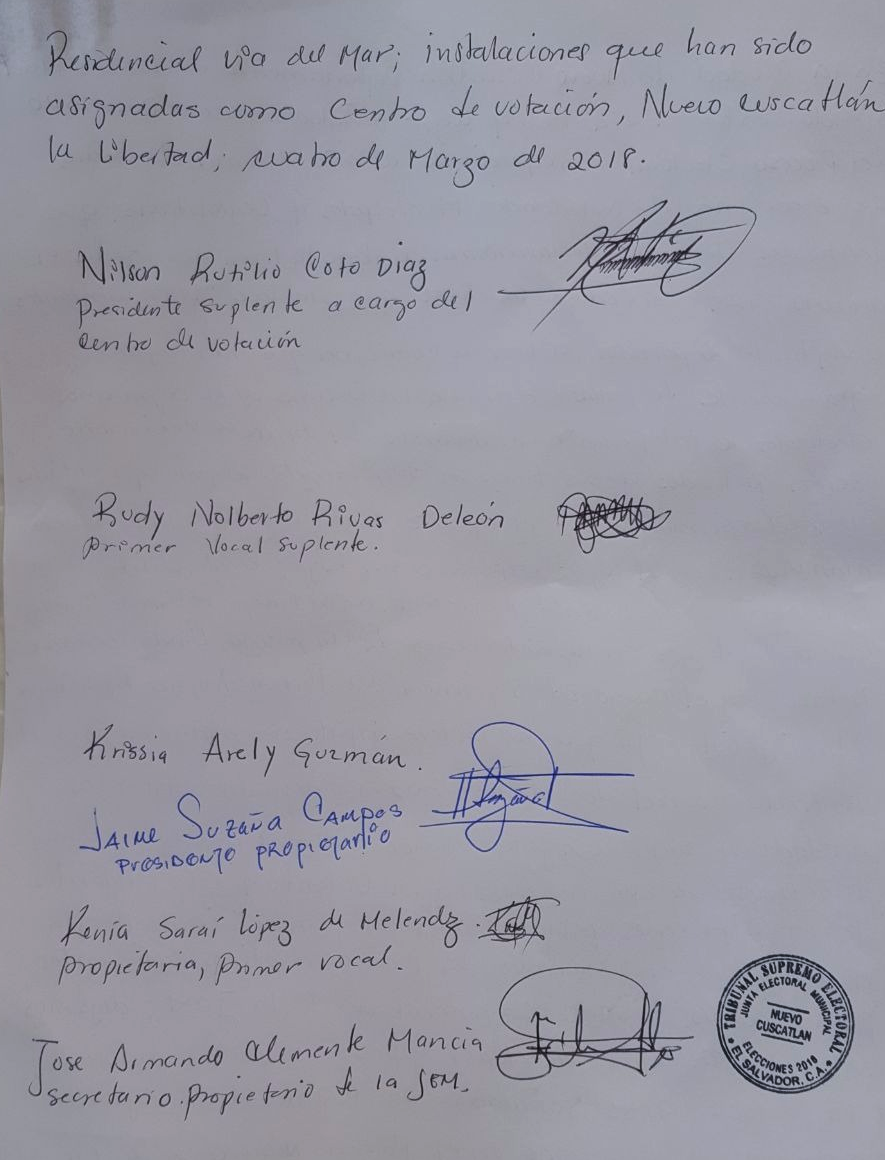 Residencial vía del Mar; instalaciones que han sido
asignadas como Centro de votación, Nuevo Cuscatlán
la libertad; cuatro de Marzo de 2018.
Nilson Rutilio Coto Diaz
Presidente suplente a cargo del
centro de votación
Rudy Nolberto Rivas Deleón
primer Vocal suplente.
Krissia Arely Guzmán.
JAIME SUZAÑA CAMPOS
PRESIDENTE PROPIETARIO
Kenia Saraí López de Melendz.
propietaria, primer vocal.
Jose Armando Clemente Mancia
secretario propietario de la JEM.
TRIBUNAL SUPREMO ELECTORAL
JUNTA ELECTORAL MUNICIPAL
NUEVO
CUSCATLAN
ELECCIONES 2018
EL SALVADOR, C.A.